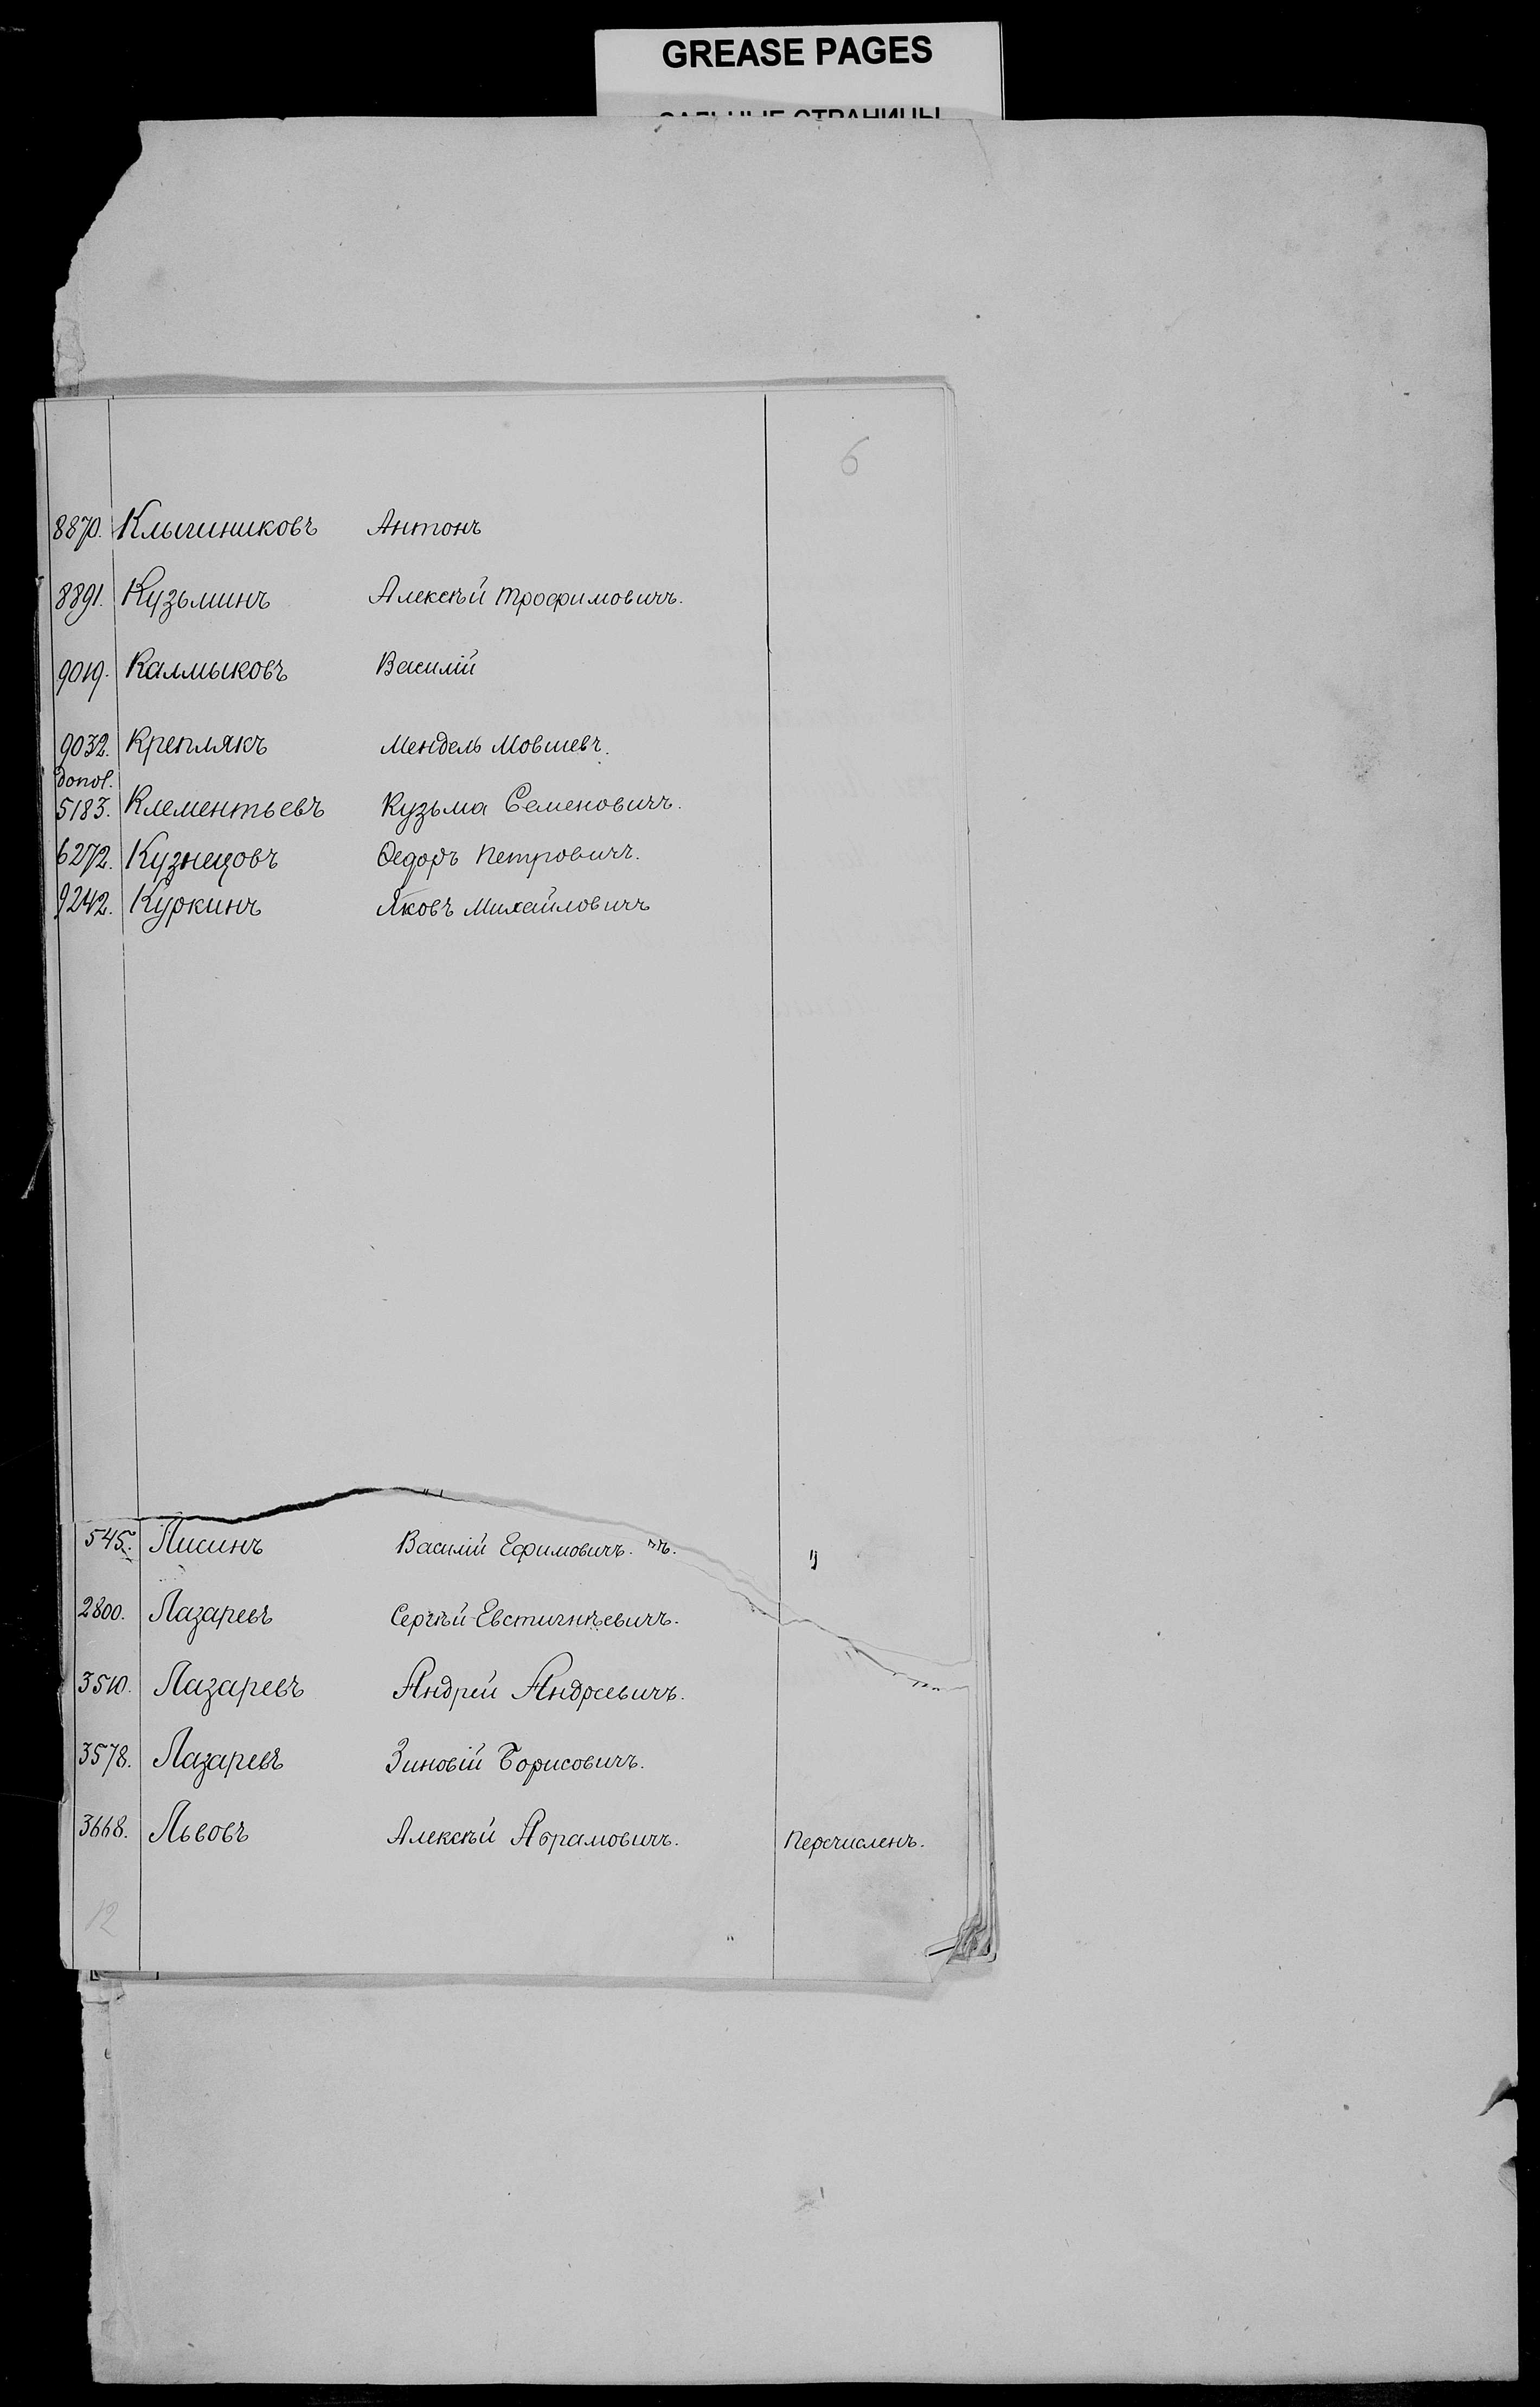 GREASE PAGES
САЛЬНЫЕ СТРАНИЦЫ
6
8870. Клыгиниковъ Антонъ
8891. Кузьминъ Алексѣй Трофимовичъ.
9019. Калмыковъ Василій
9032. Креплякъ Мендель Мовшевъ.
допол.
5183. Клементьевъ Кузьма Семеновичъ.
6272. Кузнецовъ Ѳедоръ Петровичъ.
9242. Куркинъ Яковъ Михайловичъ
545. Лисинъ Василій Ефимовичъ.
2800. Лазаревъ Сергѣй Евстигнѣевичъ.
3510. Лазаревъ Андрей Андреевичъ.
3578. Лазаревъ Зиновій Борисовичъ.
3668. Львовъ Алексѣй Абрамовичъ. Перечисленъ.
12